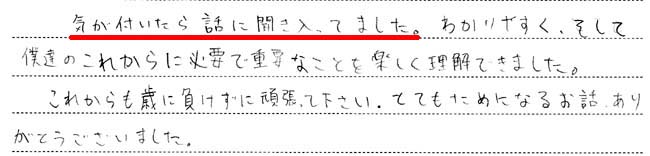 気が付いたら話に聞き入ってました。わかりやすく、そして
僕達のこれからに必要で重要なことを楽しく理解できました。
これからも歳に負けずに頑張って下さい。とてもためになるお話、あり
がとうございました。